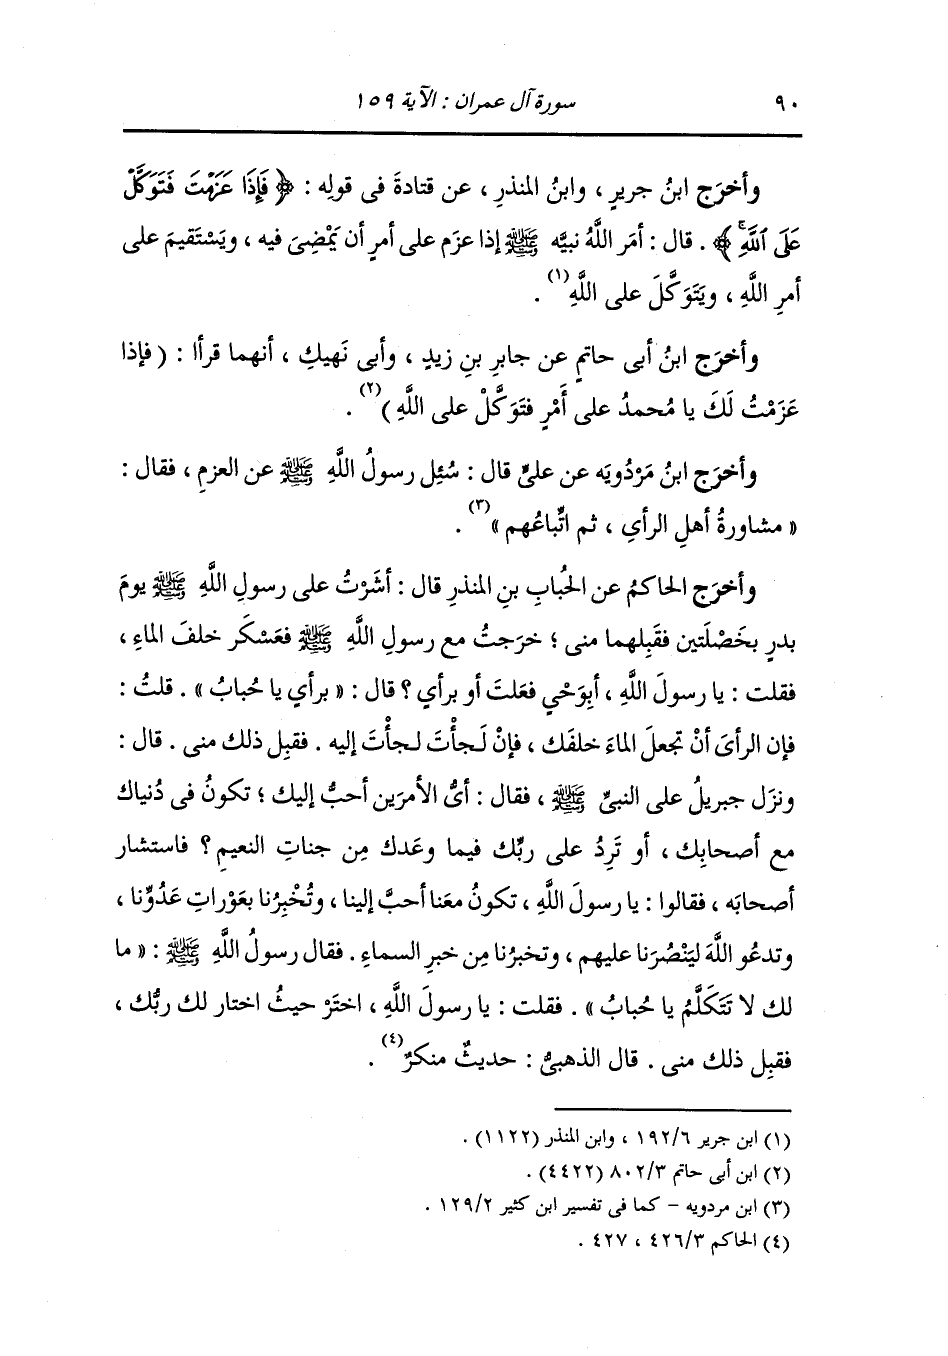 ٩٠ سورة آل عمران : الآية ١٥٩
وأخرَج ابنُ جريرٍ ، وابنُ المنذرِ ، عن قتادةَ فى قولِه : ﴿ فَإِذَا عَزَمْتَ فَتَوَكَّلْ
عَلَى ٱللَّهِۚ ﴾ . قال : أمَر اللَّهُ نبيَّه ﷺ إذا عزَم على أمرٍ أن يَمْضِىَ فيه ، ويَسْتقيمَ على
أمرِ اللَّهِ ، ويَتَوَكَّلَ على اللَّهِ(١) .
وأخرَج ابنُ أبى حاتمٍ عن جابرِ بنِ زيدٍ ، وأبى نَهيكٍ ، أنهما قرأا : ( فإذا
عَزَمْتُ لَكَ يا مُحمدُ على أَمْرٍ فتَوَكَّلْ على اللَّهِ )(٢) .
وأخرَج ابنُ مَرْدُويَه عن علىٍّ قال : سُئِل رسولُ اللَّهِ ﷺ عن العزمِ ، فقال :
« مشاورةُ أهلِ الرأىِ ، ثم اتِّباعُهم »(٣) .
وأخرَج الحاكمُ عن الحُبابِ بنِ المنذرِ قال : أشَرْتُ على رسولِ اللَّهِ ﷺ يومَ
بدرٍ بخَصْلَتين فقَبِلهما منى ؛ خرَجتُ مع رسولِ اللَّهِ ﷺ فعَسْكَر خلفَ الماءِ ،
فقلت : يا رسولَ اللَّهِ ، أبِوَحْيٍ فعَلتَ أو برأىٍ ؟ قال : « برأىٍ يا حُبابُ » . قلتُ :
فإن الرأىَ أنْ تجعلَ الماءَ خلفَك ، فإنْ لَجأْتَ لجأْتَ إليه . فقبِل ذلك منى . قال :
ونزَل جبريلُ على النبىِّ ﷺ ، فقال : أىُّ الأمرَين أحبُّ إليك ؛ تكونُ فى دُنياك
مع أصحابِك ، أو تَرِدُ على ربِّك فيما وعَدك مِن جناتِ النعيمِ ؟ فاستشار
أصحابَه ، فقالوا : يا رسولَ اللَّهِ ، تكونُ معَنا أحبُّ إلينا ، وتُخْبِرُنا بعَوْراتِ عَدُوِّنا ،
وتدعُو اللَّهَ ليَنْصُرَنا عليهم ، وتخبرُنا مِن خبرِ السماءِ . فقال رسولُ اللَّهِ ﷺ : « ما
لك لا تَتَكَلَّمُ يا حُبابُ » . فقلت : يا رسولَ اللَّهِ ، اختَرْ حيثُ اختار لك ربُّك ،
فقبِل ذلك منى . قال الذهبىُّ : حديثٌ منكرٌ(٤) .
(١) ابن جرير ١٩٢/٦ ، وابن المنذر (١١٢٢) .
(٢) ابن أبى حاتم ٨٠٢/٣ (٤٤٢٢) .
(٣) ابن مردويه - كما فى تفسير ابن كثير ١٢٩/٢ .
(٤) الحاكم ٤٢٦/٣ ، ٤٢٧ .